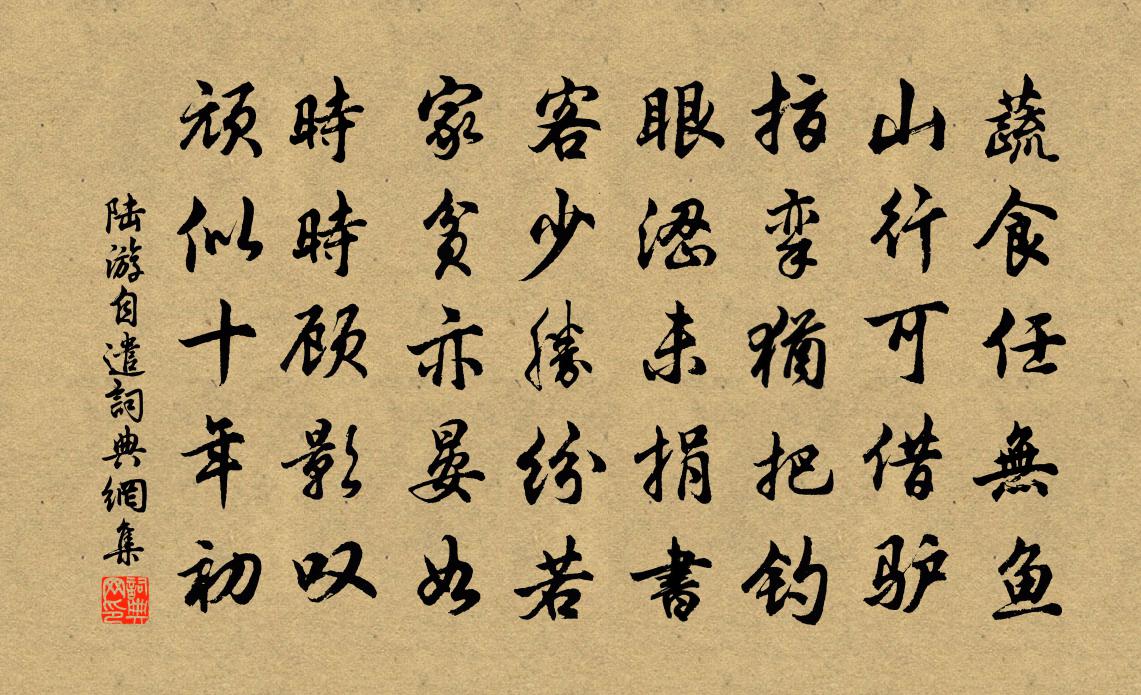 蔬食任無鱼
山行可借驴
指挛猶把钓
眼涩未捐書
客少勝纷若
家贫亦晏如
時時顾影叹
顽似十年初
陆游自遣詞典網集
詞典网印